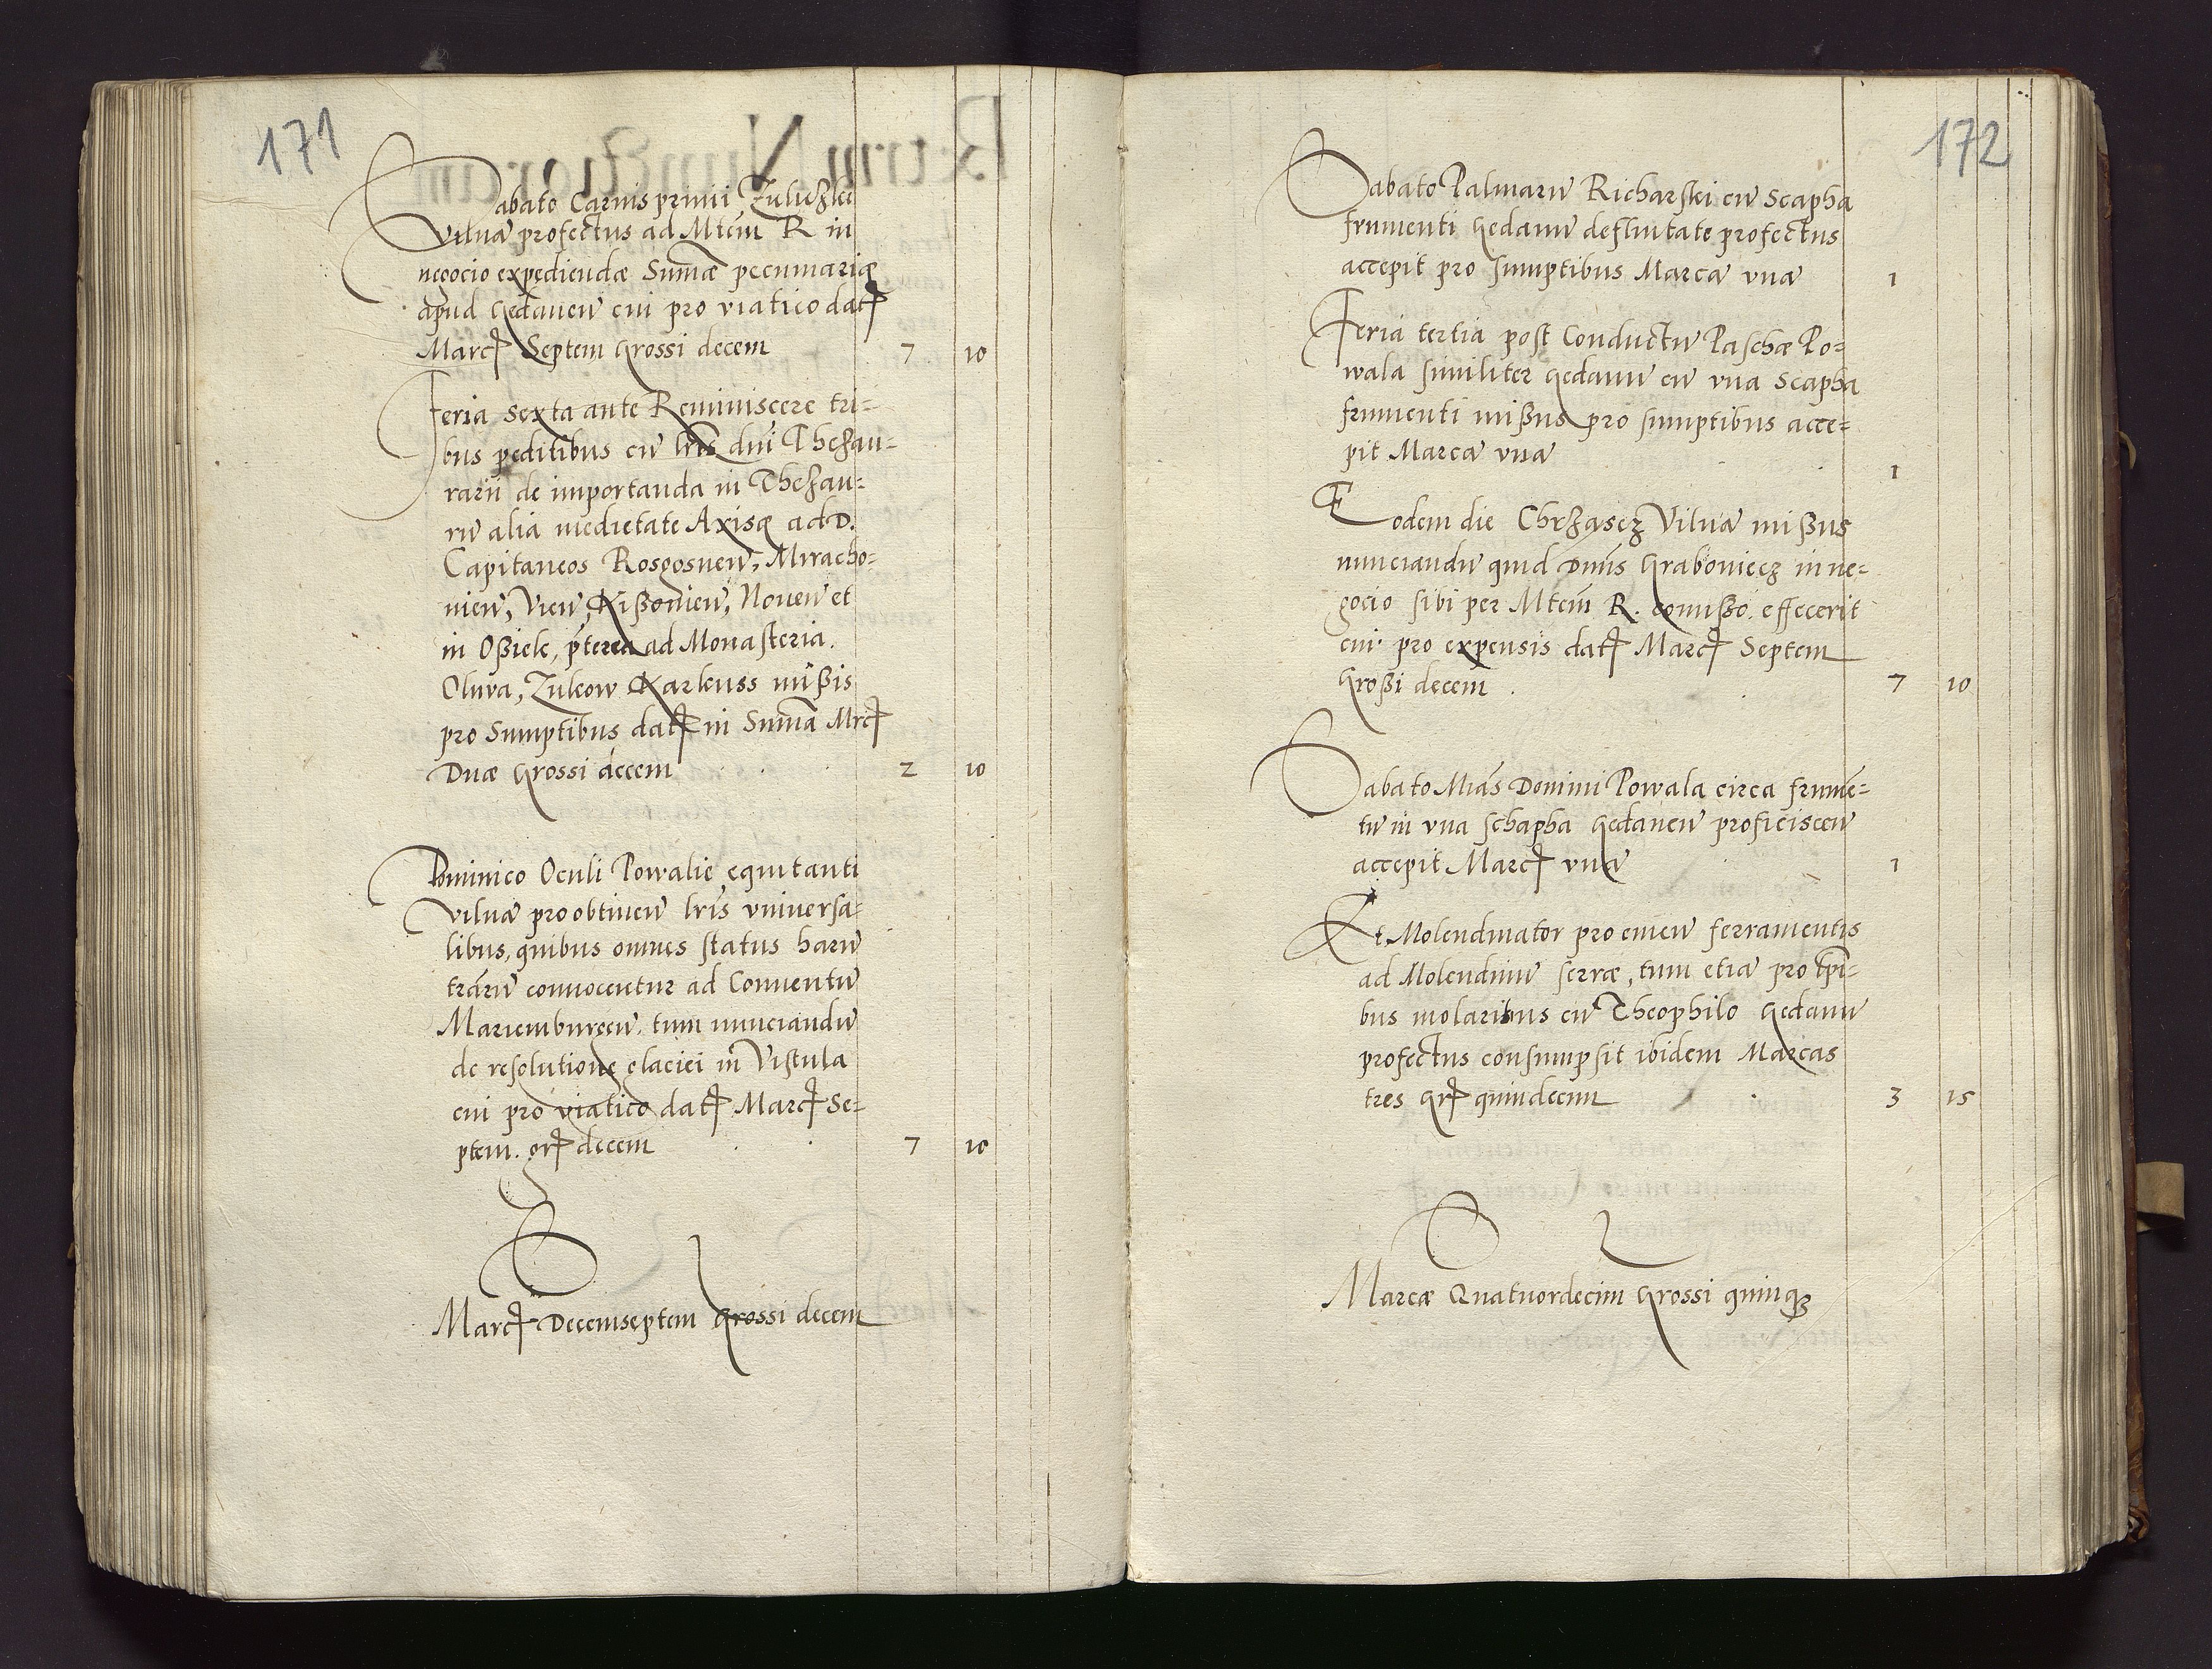 171
Sabato Carnis priuii Zuliczkj
vilnā profectus ad Mtēm R in
negocio expediendæ Sumæ pecuniariæ
apud Gedanen̄ cui pro viatico datȩ
Marcȩ Septem Grossi decem 7 10
Feria sexta ante Reminiscere tri=
bus peditibus cū lr̄is dn̄i Thesau=
rarii de importanda in Thesau=
rū alia medietate Axisæ ad D.
Capitaneos Rosgosnen̄, Miracho=
nien̄, Vien̄, Kißonien̄, Nouen̄ et
in Oßiek, p̄terea ad Monasteria.
Oliva, Zukow Karkuss mißis
pro Sumptibus datȩ in Sumā Mrcȩ
Duæ Grossi decem 2 10
Dominico Oculi Powalie equitanti
vilnā pro obtinen̄ lr̄is vniuersa=
libus, quibus omnes status harū
trārū conuocentur ad Conuentū
Mariemburgen̄. tum nunciandū
de resolutione glaciei in Vistula
cui pro viatico datȩ Marcȩ Se=
ptem. grȩ decem 7 10
Marcȩ Decemseptem Grossi decem
172
Sabato Palmarū Richarski cū Scapha
frumenti Gedanū defluitate profectus
accepit pro sumptibus Marcā vnā 1
Feria tertia post Conductū Paschæ Po=
wala similiter Gedanū cū vna Scapha
frumenti mißus pro sumptibus acce=
pit Marcā vnā 1
Eodem die Chrząscz Vilnā mißus
nunciandū quid Dnūs Grabowiecz in ne=
gocio sibi per Mtēm R. comißo. effecerit
cui pro expensis datȩ Marcȩ Septem
Großi decem 7 10
Sabato Miās Domini Powala circa frumē=
tū in vna schapha Gedanen̄ proficiscen̄
accepit Marcȩ vnā 1
Et Molendinator pro emen̄ ferramentis
ad Molendinū serræ, tum etiā pro lpi=
bus molaribus cū Theophilo Gedanū
profectus consumpsit ibidem Marcas
tres Grȩ quindecim 3 15
Marcæ Quatuordecim Grossi quinqȝ